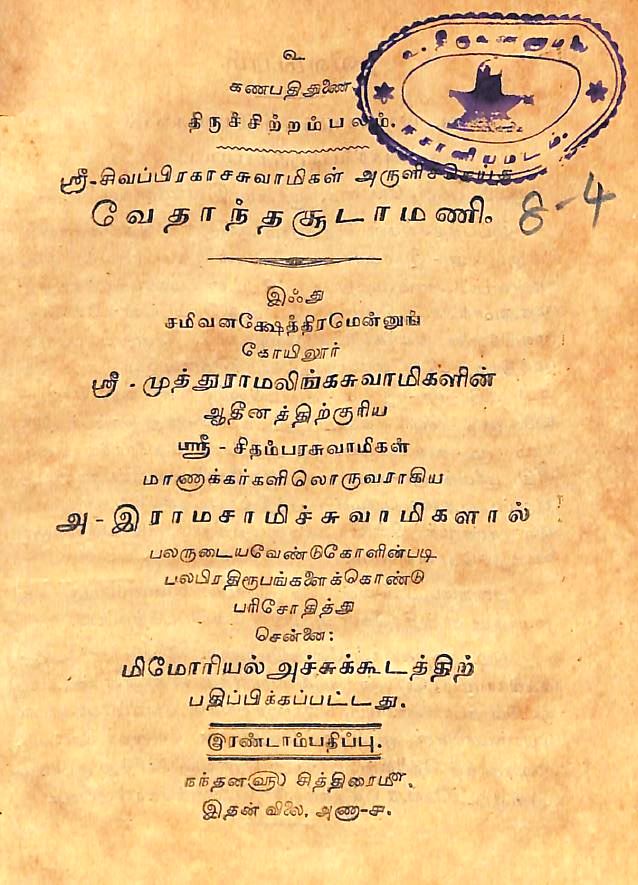 உ
கணபதிதுணை
திருச்சிற்றம்பலம்.
உ. திருவண்ணாமலை
ஈசானியமடம்.
ஸ்ரீ-சிவப்பிரகாசசுவாமிகள் அருளிச்செய்த
வேதாந்தசூடாமணி.
8-4
இஃது
சமிவனக்ஷேத்திரமென்னுங்
கோயிலூர்
ஸ்ரீ - முத்துராமலிங்கசுவாமிகளின்
ஆதீனத்திற்குரிய
ஸ்ரீ - சிதம்பரசுவாமிகள்
மாணாக்கர்களிலொருவராகிய
அ - இராமசாமிச்சுவாமிகளால்
பலருடையவேண்டுகோளின்படி
பலபிரதிரூபங்களைக்கொண்டு
பரிசோதித்து
சென்னை:
மிமோரியல் அச்சுக்கூடத்திற்
பதிப்பிக்கப்பட்டது.
இரண்டாம்பதிப்பு.
நந்தன௵ சித்திரை௴.
இதன் விலை, அணா-௪.